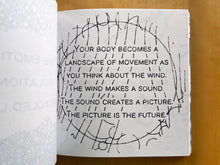 YOUR BODY BECOMES A
LANDSCAPE OF MOVEMENT AS
YOU THINK ABOUT THE WIND.
THE WIND MAKES A SOUND.
THE SOUND CREATES A PICTURE.
THE PICTURE IS THE FUTURE.